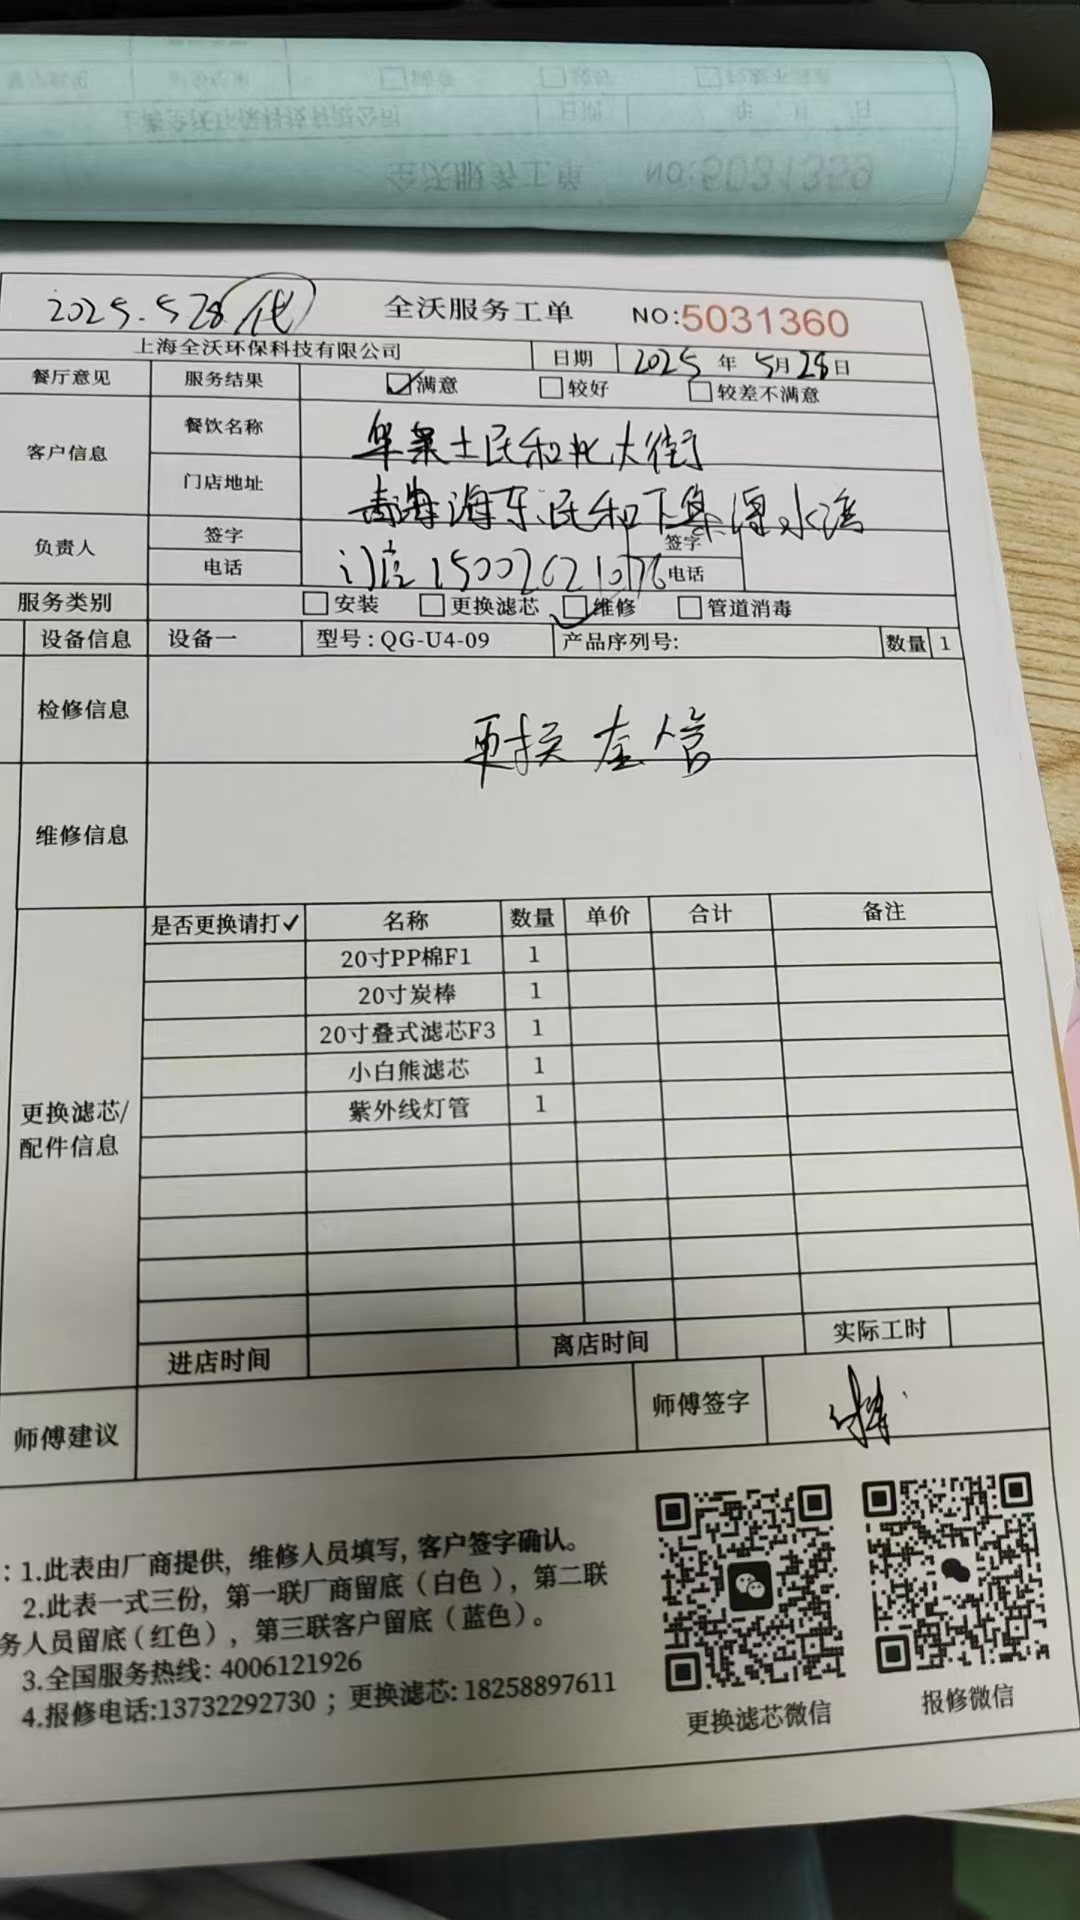 全沃服务工单 NO:5031359
2025.5 28 代 全沃服务工单 NO:5031360
上海全沃环保科技有限公司 日期 2025 年 5月 28 日
餐厅意见 服务结果 满意 较好 较差不满意
客户信息 餐饮名称 华莱士民和北大街
门店地址 青海海东民和下集
负责人 签字 签字
电话 门店 15002621076 电话
服务类别 安装 更换滤芯 维修 管道消毒
设备信息 设备一 型号: QG-U4-09 产品序列号: 数量 1
检修信息 更换
维修信息
是否更换请打✓ 名称 数量 单价 合计 备注
20寸PP棉F1 1
20寸炭棒 1
20寸叠式滤芯F3 1
小白熊滤芯 1
紫外线灯管 1
更换滤芯/
配件信息
进店时间 离店时间 实际工时
师傅建议 师傅签字
: 1.此表由厂商提供, 维修人员填写, 客户签字确认。
2.此表一式三份, 第一联厂商留底（白色）, 第二联
务人员留底(红色）, 第三联客户留底（蓝色）。
3.全国服务热线: 4006121926
4.报修电话:13732292730 ; 更换滤芯: 18258897611
更换滤芯微信 报修微信